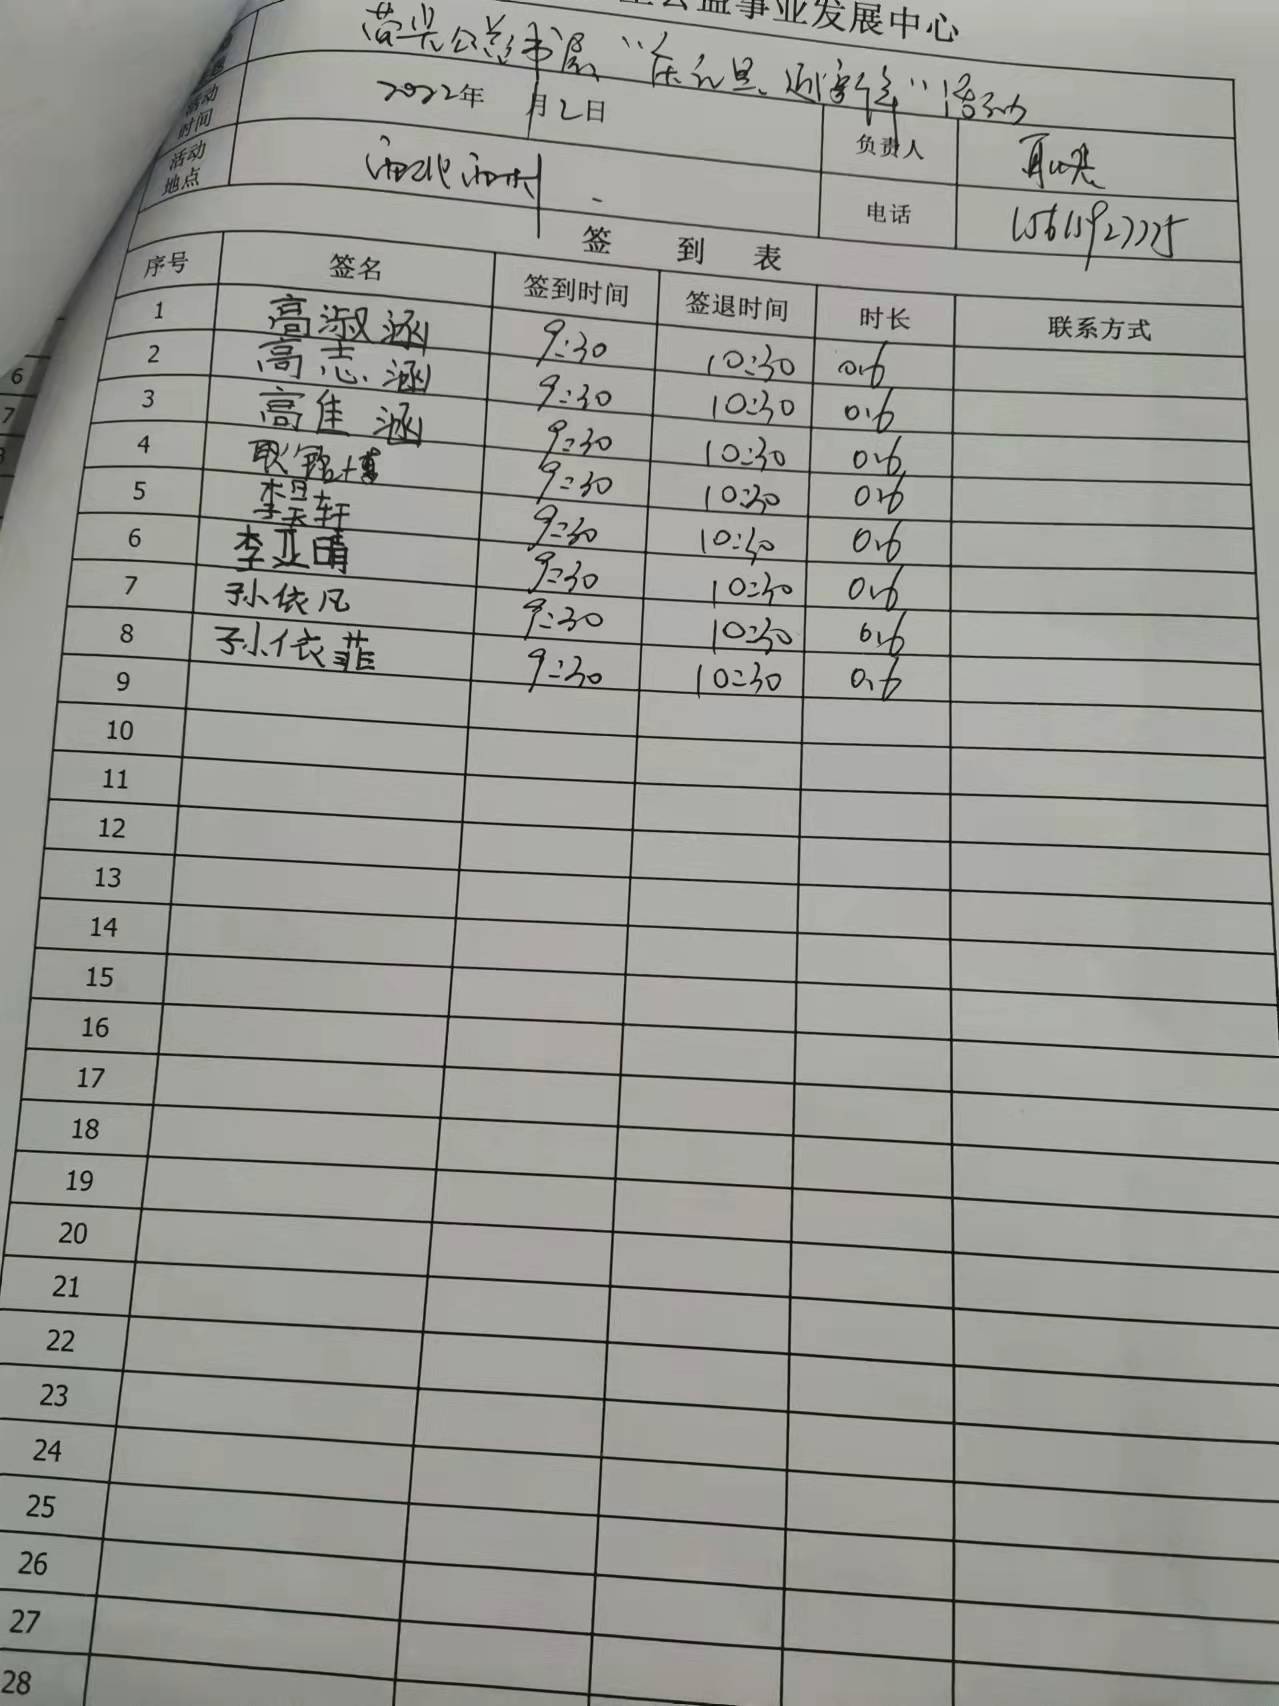 公益事业发展中心
公益书屋"庆元旦、迎新年"活动
活动时间 2022年 月2日 负责人
活动地点 电话 15611927775
签 到 表
序号 签名 签到时间 签退时间 时长 联系方式
1 高淑涵 9:30 10:30 0.6
2 高志涵 9:30 10:30 0.6
3 高佳涵 9:30 10:30 0.6
4 耿铭博 9:30 10:30 0.6
5 李昊轩 9:30 10:30 0.6
6 李亚晴 9:30 10:30 0.6
7 孙依凡 9:30 10:30 0.6
8 孙依菲 9:30 10:30 0.6
9
10
11
12
13
14
15
16
17
18
19
20
21
22
23
24
25
26
27
28
6
7